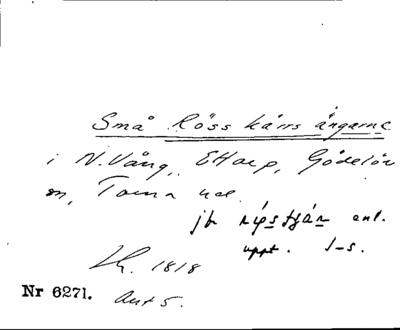 Små Röss kärrs ängarne
i N. Vång, EHarg, Gödelöv
sn, Torna hd.
jfr enl.
uppt. 1-s.
Lk. 1818
Nr 6271. Akt 5.